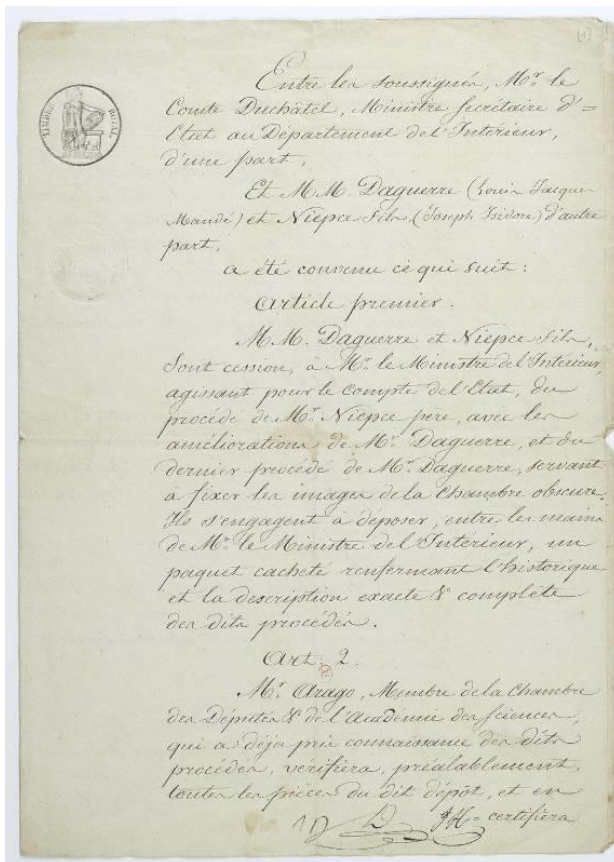 [1]
TIMBRE ROYAL
Entre les soussignés, Mr. le
Comte Duchâtel, Ministre Secrétaire d'=
Etat au Département de l'Intérieur,
d'une part,
Et M M. Daguerre (Louis Jacques
Mandé) et Niépce fils (Joseph Isidore) d'autre
part,
a été convenu ce qui suit :
Article premier.
M M. Daguerre et Niépce fils,
font cession, à Mr. le Ministre de l'Intérieur,
agissant pour le compte de l'Etat, du
procédé de Mr. Niépce père, avec les
améliorations de Mr. Daguerre, et du
dernier procédé de Mr. Daguerre, servant
à fixer les images de la Chambre obscure.
Ils s'engagent à déposer, entre les mains
de Mr. le Ministre de l'Intérieur, un
paquet cacheté renfermant l'historique
et la description exacte & complète
des dits procédés.
Art. 2.
Mr. Arago, Membre de la Chambre
des Députés & de l'Académie des Sciences,
qui a déja pris connaissance des dits
procédés, vérifiera, préalablement,
toutes les pièces du dit dépôt, et en
certifiera